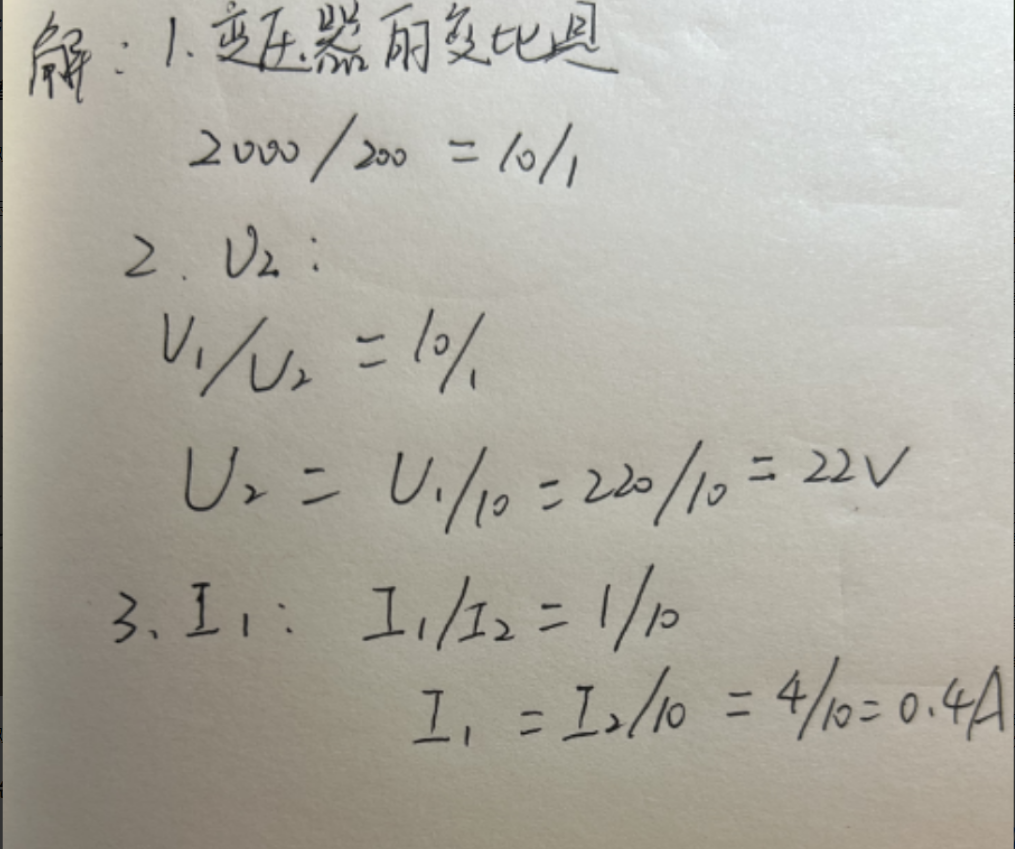 解：1. 变压器的变比是
2000/200 = 10/1
2. U₂：
U₁/U₂ = 10/1
U₂ = U₁/10 = 220/10 = 22V
3、I₁： I₁/I₂ = 1/10
I₁ = I₂/10 = 4/10 = 0.4A